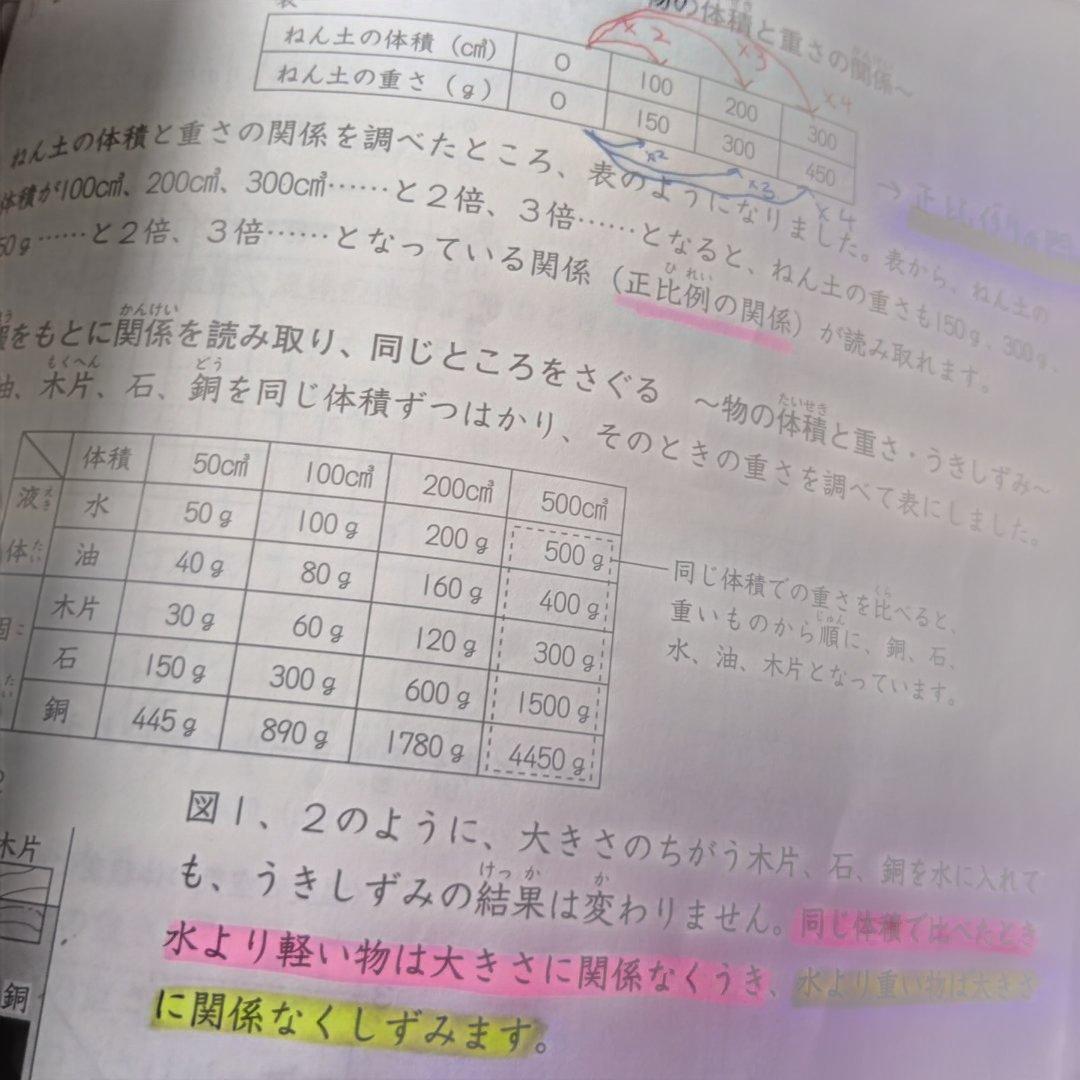 の体積と重さの関係～
ねん土の体積（cm³） 0 100 200 300
ねん土の重さ（g） 0 150 300 450
×2 ×3 ×4
×2 ×3 ×4
→正比例の関
ねん土の体積と重さの関係を調べたところ、表のようになりました。表から、ねん土の
体積が100cm³、200cm³、300cm³……と２倍、３倍……となると、ねん土の重さも150g、300g、
50g……と２倍、３倍……となっている関係（正比例の関係）が読み取れます。
ひれい
をもとに関係を読み取り、同じところをさぐる ～物の体積と重さ・うきしずみ～
かんけい たいせき
油、木片、石、銅を同じ体積ずつはかり、そのときの重さを調べて表にしました。
もくへん どう
体積 50cm³ 100cm³ 200cm³ 500cm³
液体 水 50g 100g 200g 500g
えきたい
油 40g 80g 160g 400g
固 木片 30g 60g 120g 300g
こ
石 150g 300g 600g 1500g
たい
銅 445g 890g 1780g 4450g
同じ体積での重さを比べると、
くら
重いものから順に、銅、石、
じゅん
水、油、木片となっています。
図１、２のように、大きさのちがう木片、石、銅を水に入れて
も、うきしずみの結果は変わりません。同じ体積で比べたとき
けっか か
水より軽い物は大きさに関係なくうき、水より重い物は大きさ
に関係なくしずみます。
木片
銅